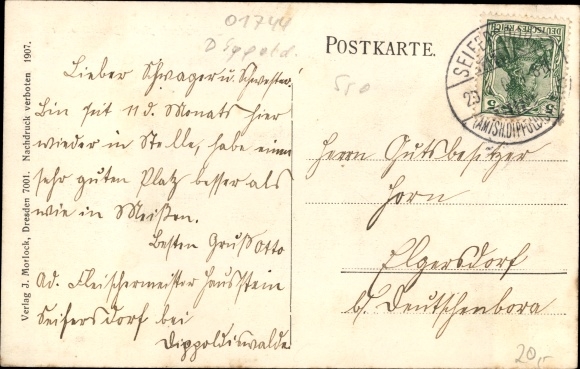 01744
Dippold.
Lieber Schwager u. Schwester!
Bin seit 11 d. Monats hier
wieder in Stelle, habe einen
sehr guten Platz besser als
wie in Meißen.
Besten Gruß Otto
Ad. Fleischermeister Hausstein
Seifersdorf bei
Dippoldiswalde
Verlag J. Morlock, Dresden 7001. Nachdruck verboten 1907.
POSTKARTE.
Herrn Gutsbesitzer
Horn
Elgersdorf
b/ Deutschenbora
DEUTSCHES REICH
5 5
SEIFERSDORF
(AMTSH. DIPPOLDISW
23
20,-